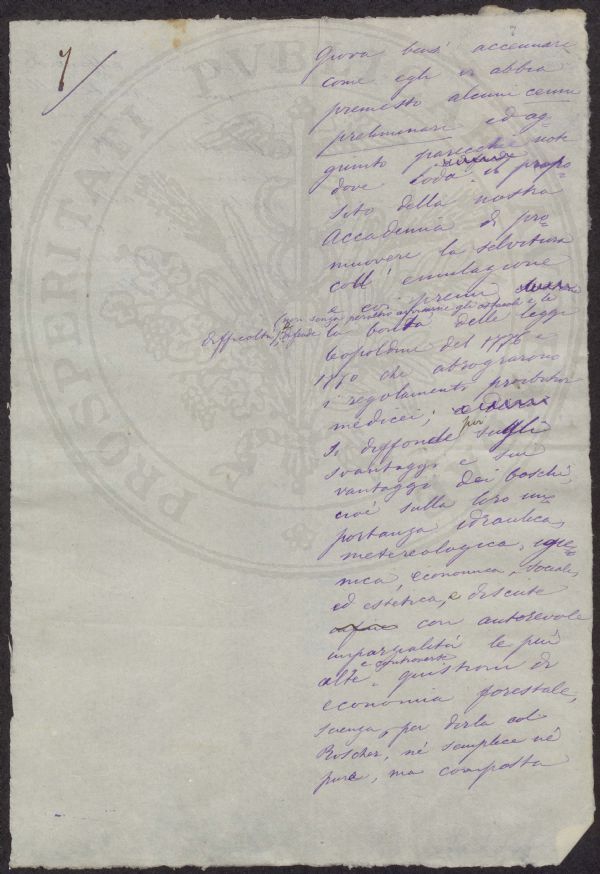 7
Giova bensì accennare
come egli vi abbia
premesso alcuni cenni
preliminari ed ag
giunto parecchie note
dove loda il propo
sito della nostra
Accademia di pro
muovere la selvicoltura
coll' emulazione
e coi premi
(non senza peraltro gli ostacoli e le
difficoltà), difende la bontà delle leggi
leopoldine del 1776 e
1770 che abrogarono
i regolamenti proibitivi
medicei;
si diffonde poi sugli
svantaggi e sui
vantaggi dei boschi,
cioè sulla loro im
portanza idraulica,
metereologica, igie
nica, economica, sociale,
ed estetica, e discute
con autorevole
imparzialità le più
alte e controverse quistioni di
economia forestale,
scienza, per dirla col
Roscher, nè semplice nè
pura, ma composta
PROSPERITATI PUBLI